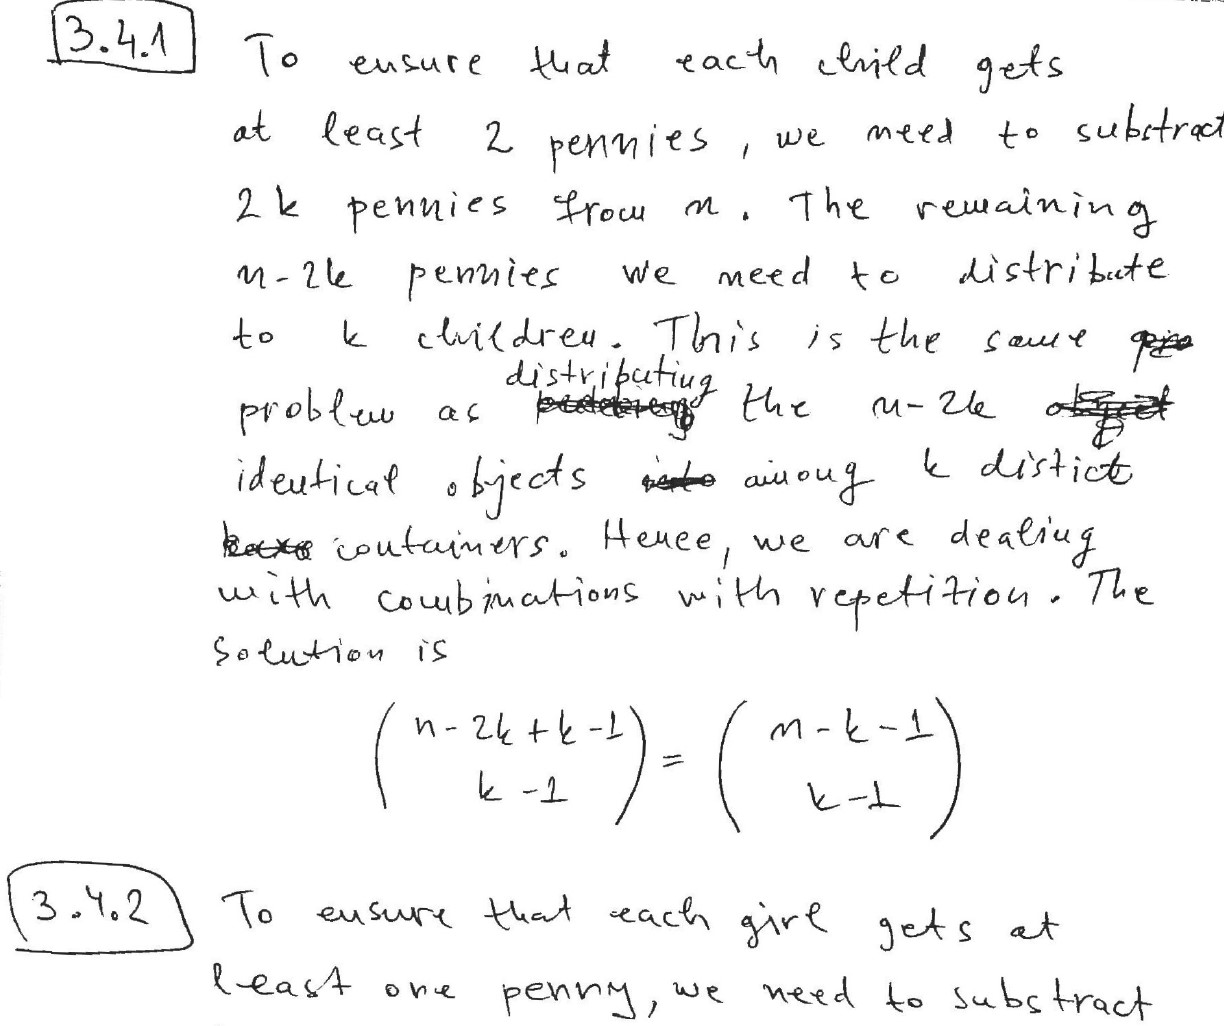 3.4.1 To ensure that each child gets
at least 2 pennies, we need to substract
2k pennies from n. The remaining
n-2k pennies we need to distribute
to k children. This is the same
problem as distributing the n-2k
identical objects among k distict
containers. Hence, we are dealing
with combinations with repetition. The
solution is
(n-2k+k-1 \ k-1) = (n-k-1 \ k-1)
3.4.2 To ensure that each girl gets at
least one penny, we need to substract